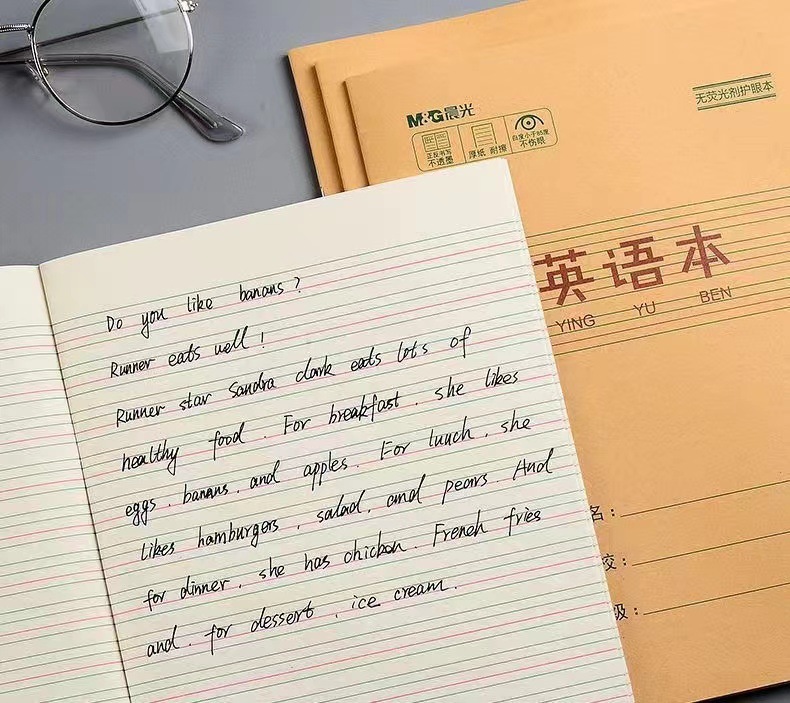 M&G晨光
正反书写
不透墨
厚纸 耐擦
白度小于85度
不伤眼
无荧光剂护眼本
英语本
YING YU BEN
名:
校:
级:
Do you like banans?
Runner eats well!
Runner star Sandra clark eats lots of
healthy food. For breakfast, she likes
eggs, banans, and apples. For lunch, she
likes hamburgers, salad, and pears. And
for dinner, she has chicken. French fries
and, for dessert, ice cream.